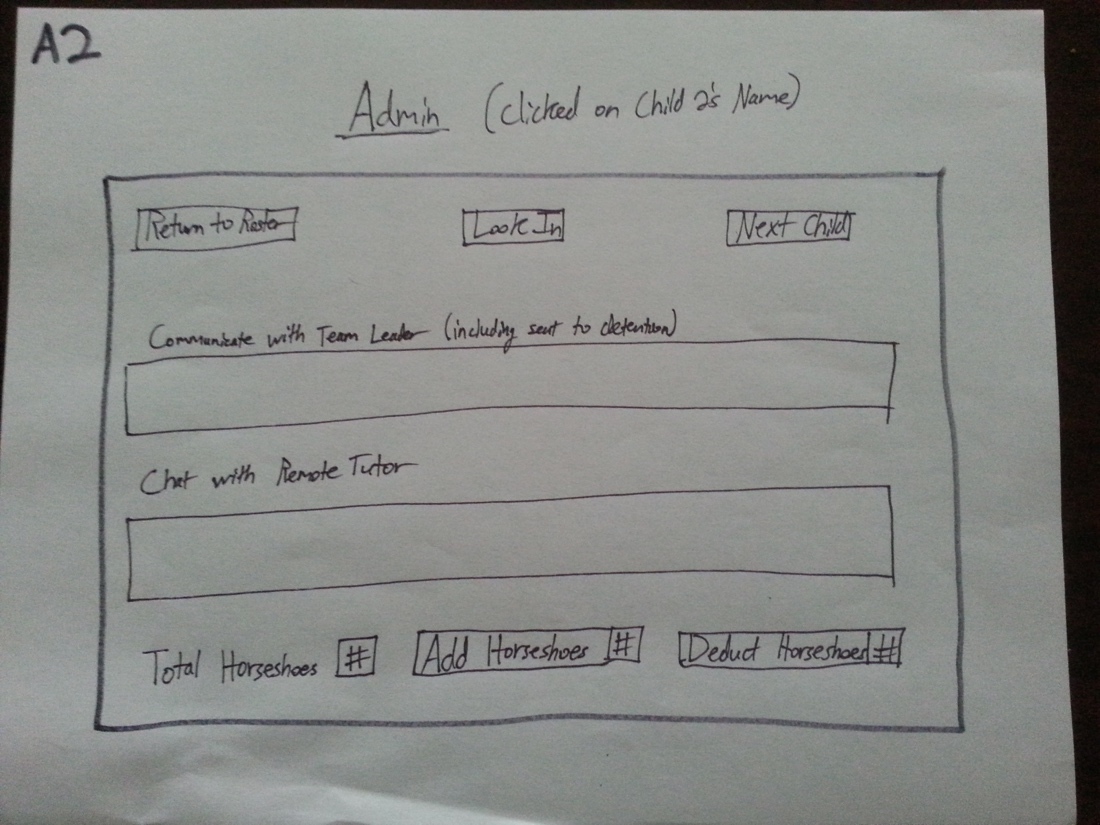 A2
Admin (Clicked on Child 2's Name)
Return to Roster Look In Next Child
Communicate with Team Leader (including sent to detention)
Chat with Remote Tutor
Total Horseshoes # Add Horseshoes # Deduct Horseshoes #